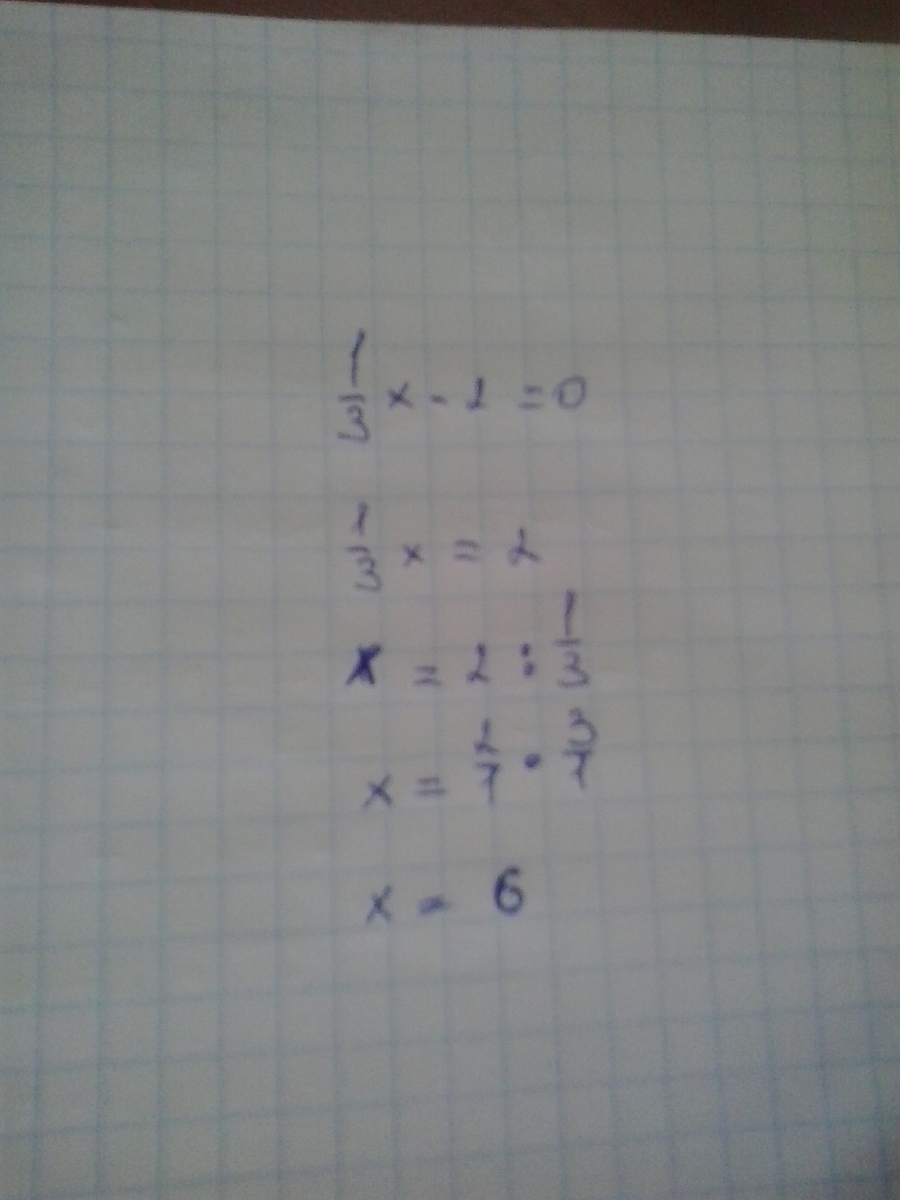 1/3 x - 2 = 0
1/3 x = 2
x = 2 : 1/3
x = 2/1 · 3/1
x = 6